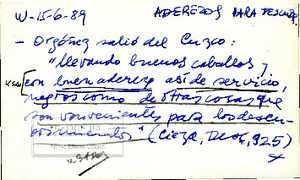 W-15-6-89 ADEREZOS PARA DESCUB.
- Orgóñez salió del Cuzco:
"llevando buenos caballos y
con buen aderezo así de servicio,
negros como de otras cosas que
son convenientes para los descu-
brimientos" (Cieza, 925)